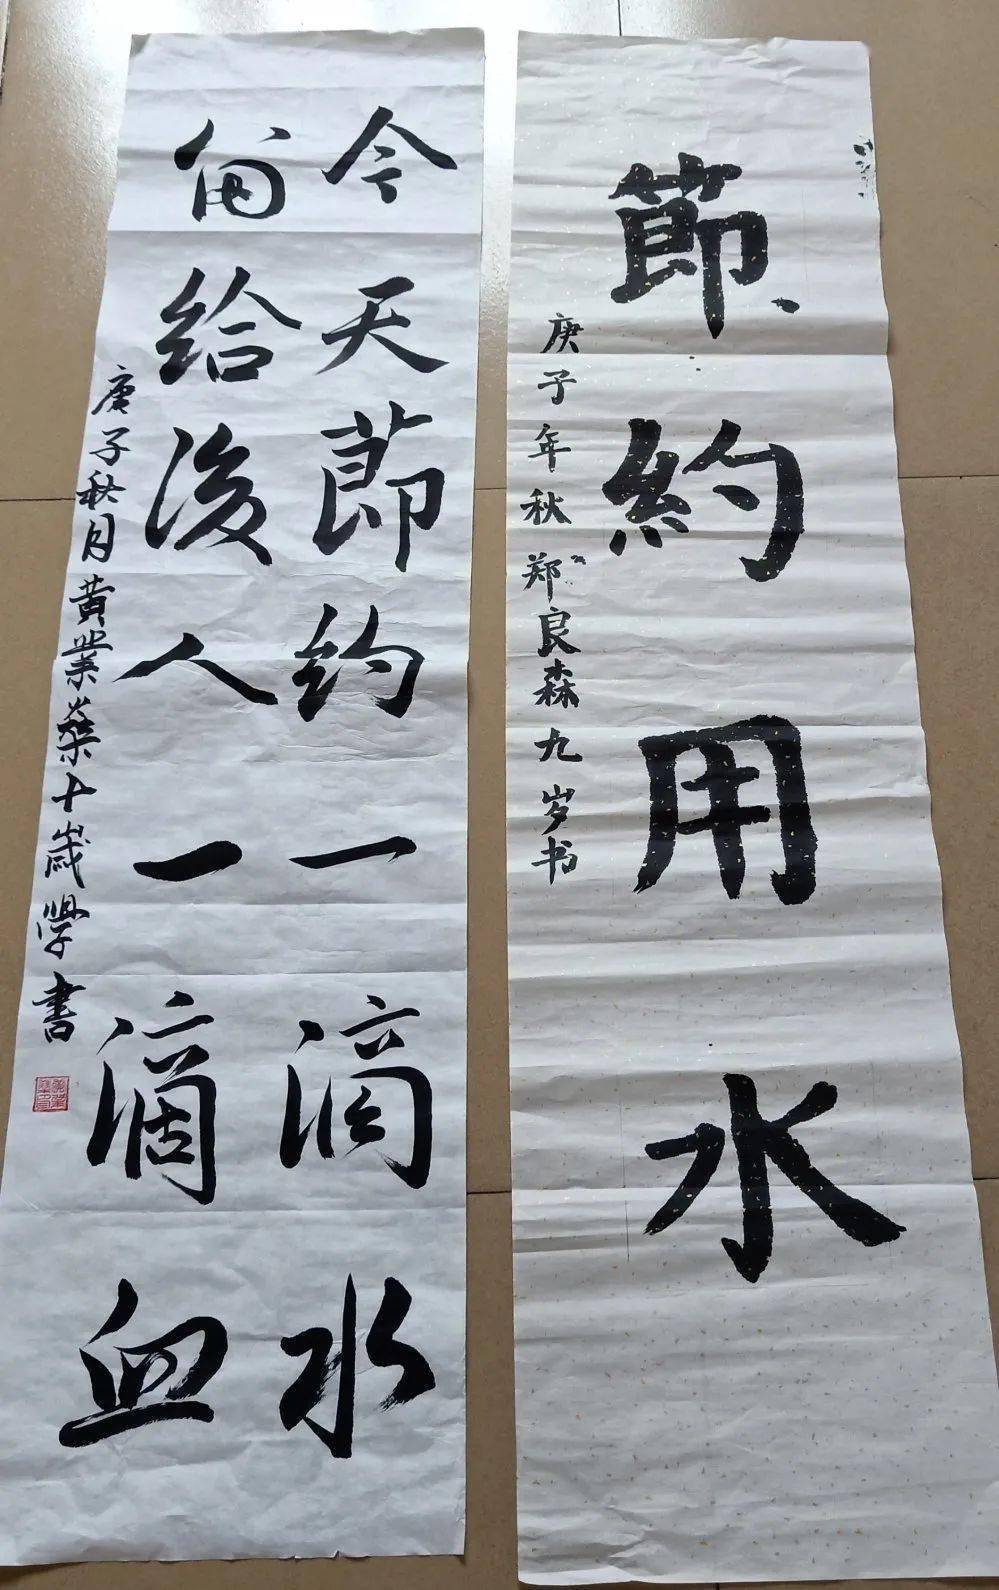 節約用水
庚子年秋郑良森九岁书
今天節约一滴水
留给後人一滴血
庚子秋月黄業十歲學書